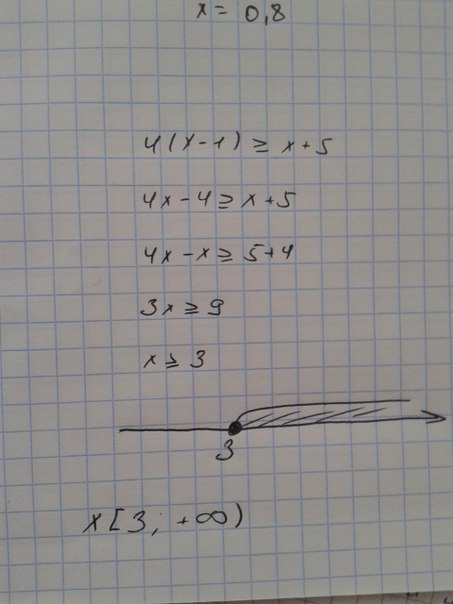 x = 0,8
4(x-1) ≥ x+5
4x-4 ≥ x+5
4x-x ≥ 5+4
3x ≥ 9
x ≥ 3
3
x[3; +∞)